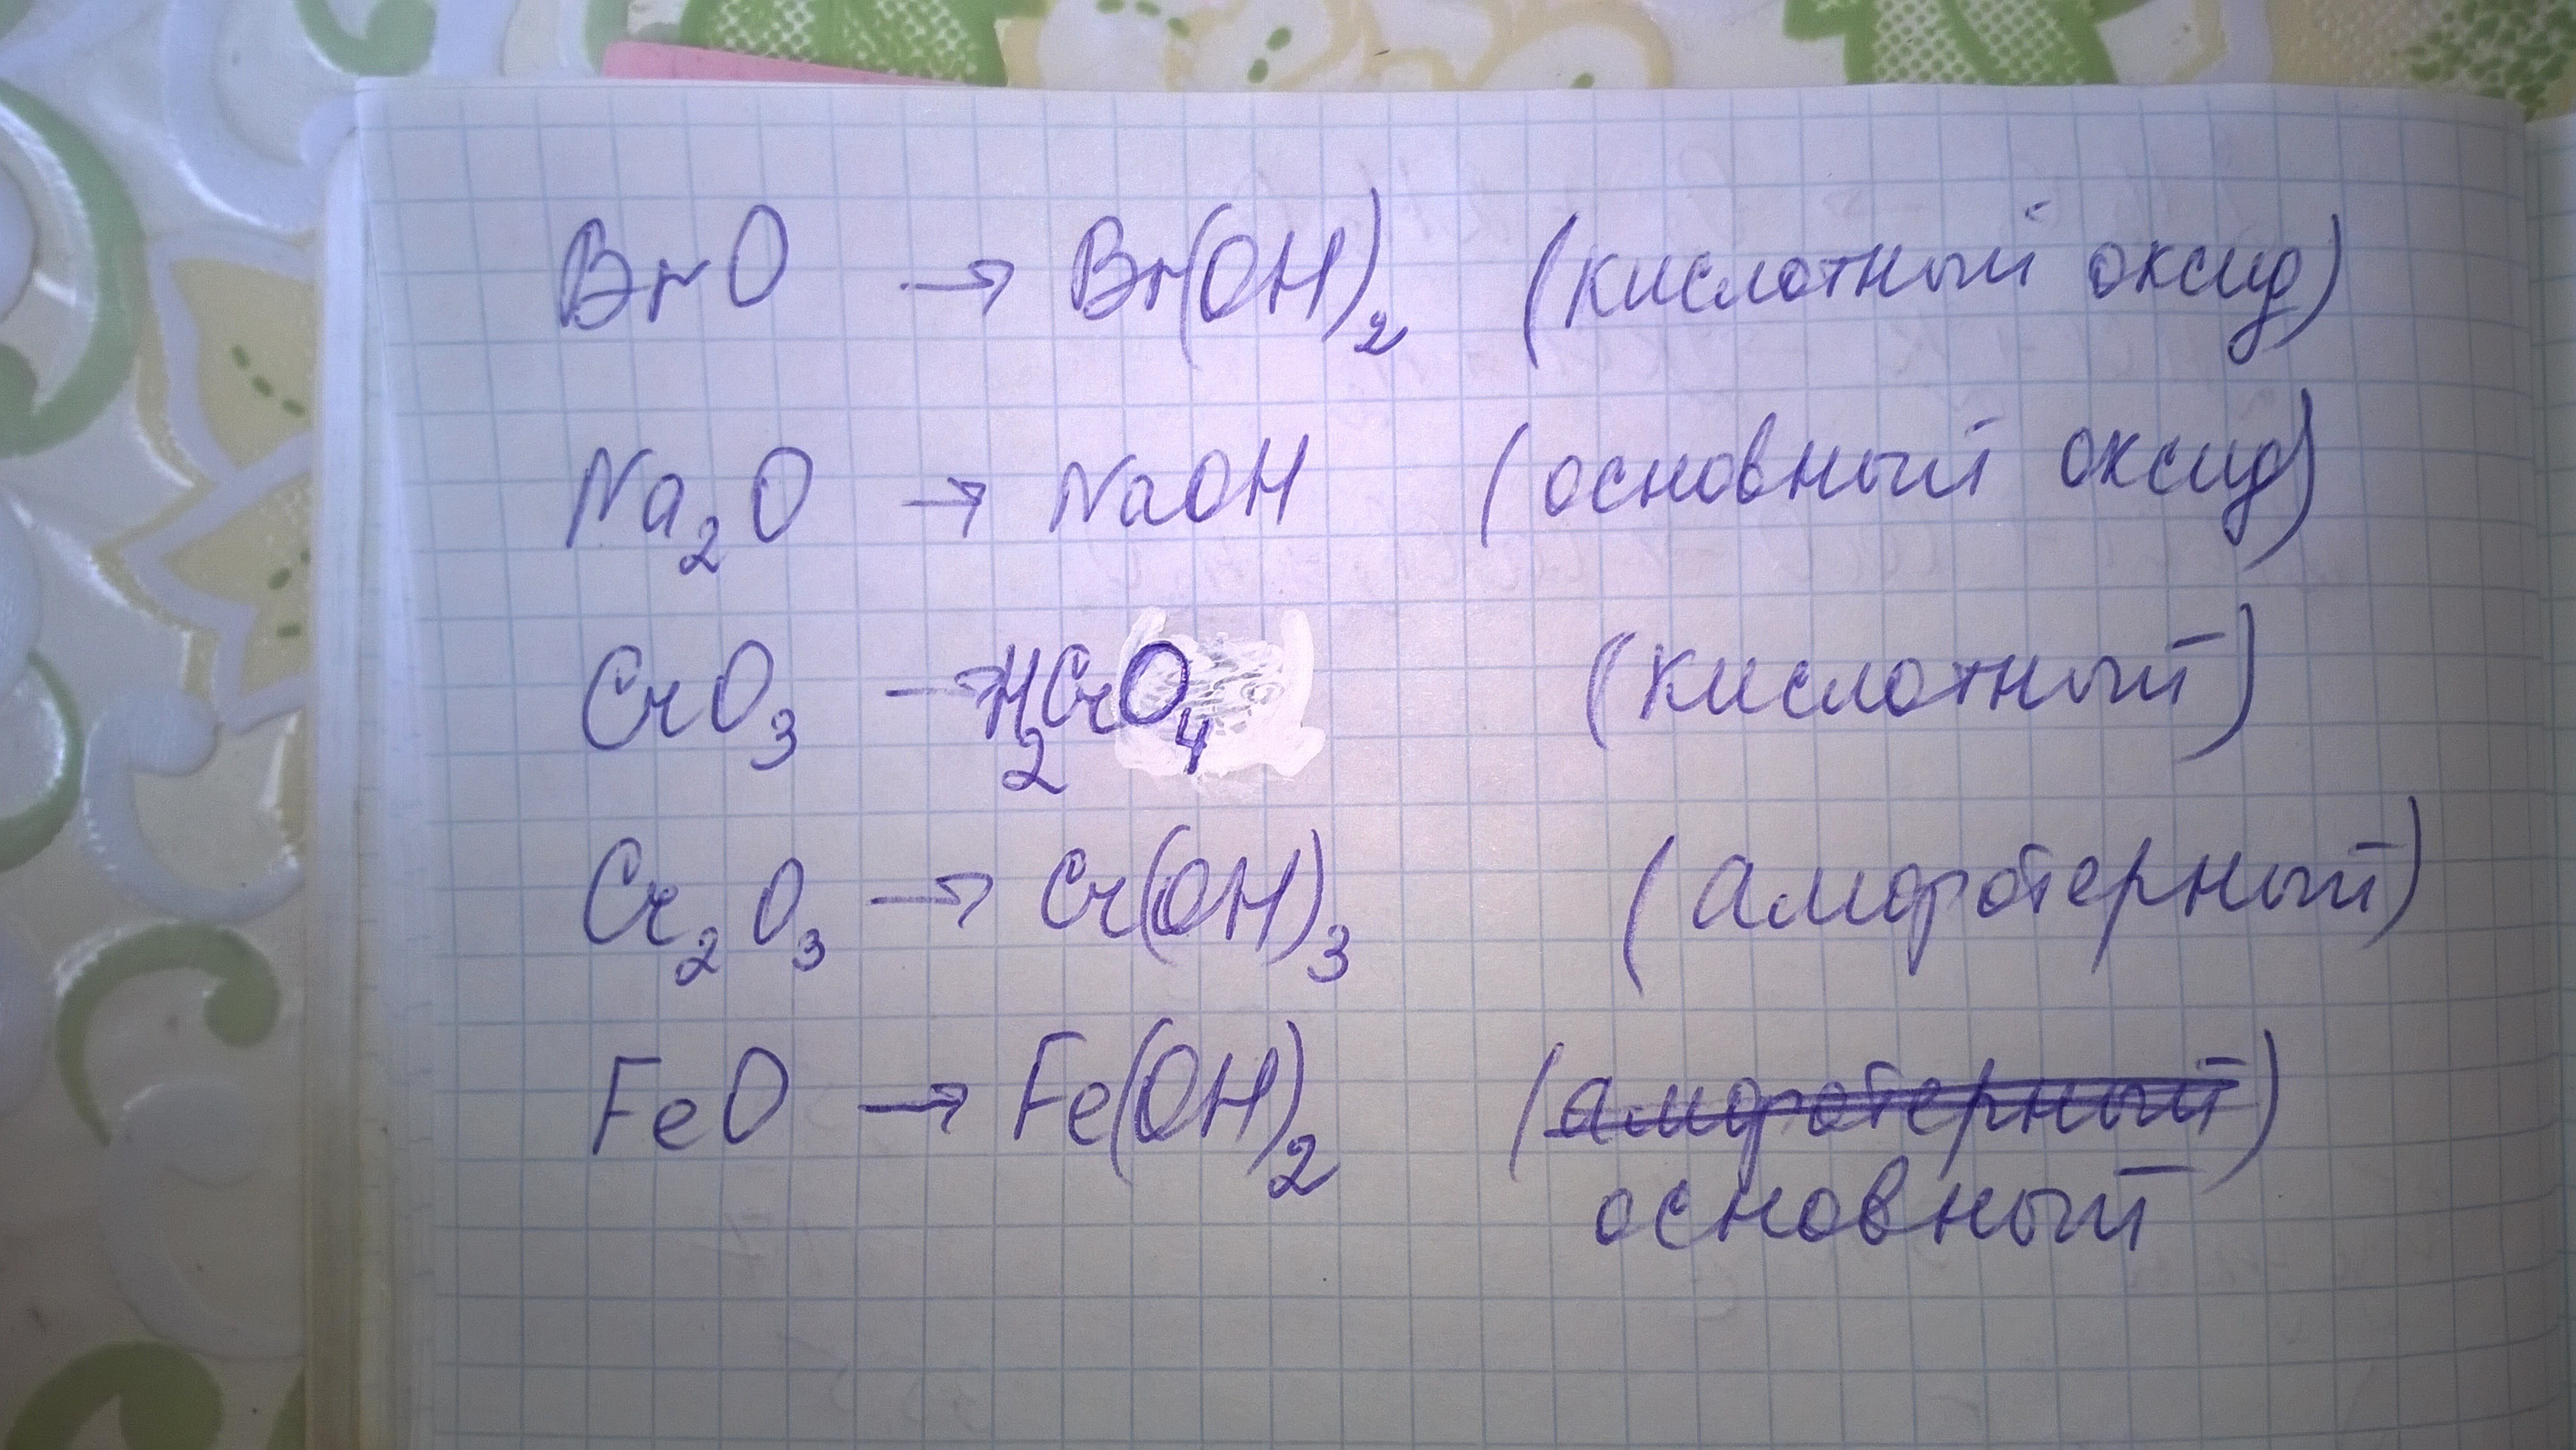 BrO → Br(OH)₂ (кислотный оксид)
Na₂O → NaOH (основный оксид)
CrO₃ → H₂CrO₄ (кислотный)
Cr₂O₃ → Cr(OH)₃ (амфотерный)
FeO → Fe(OH)₂ (амфотерный)
основный